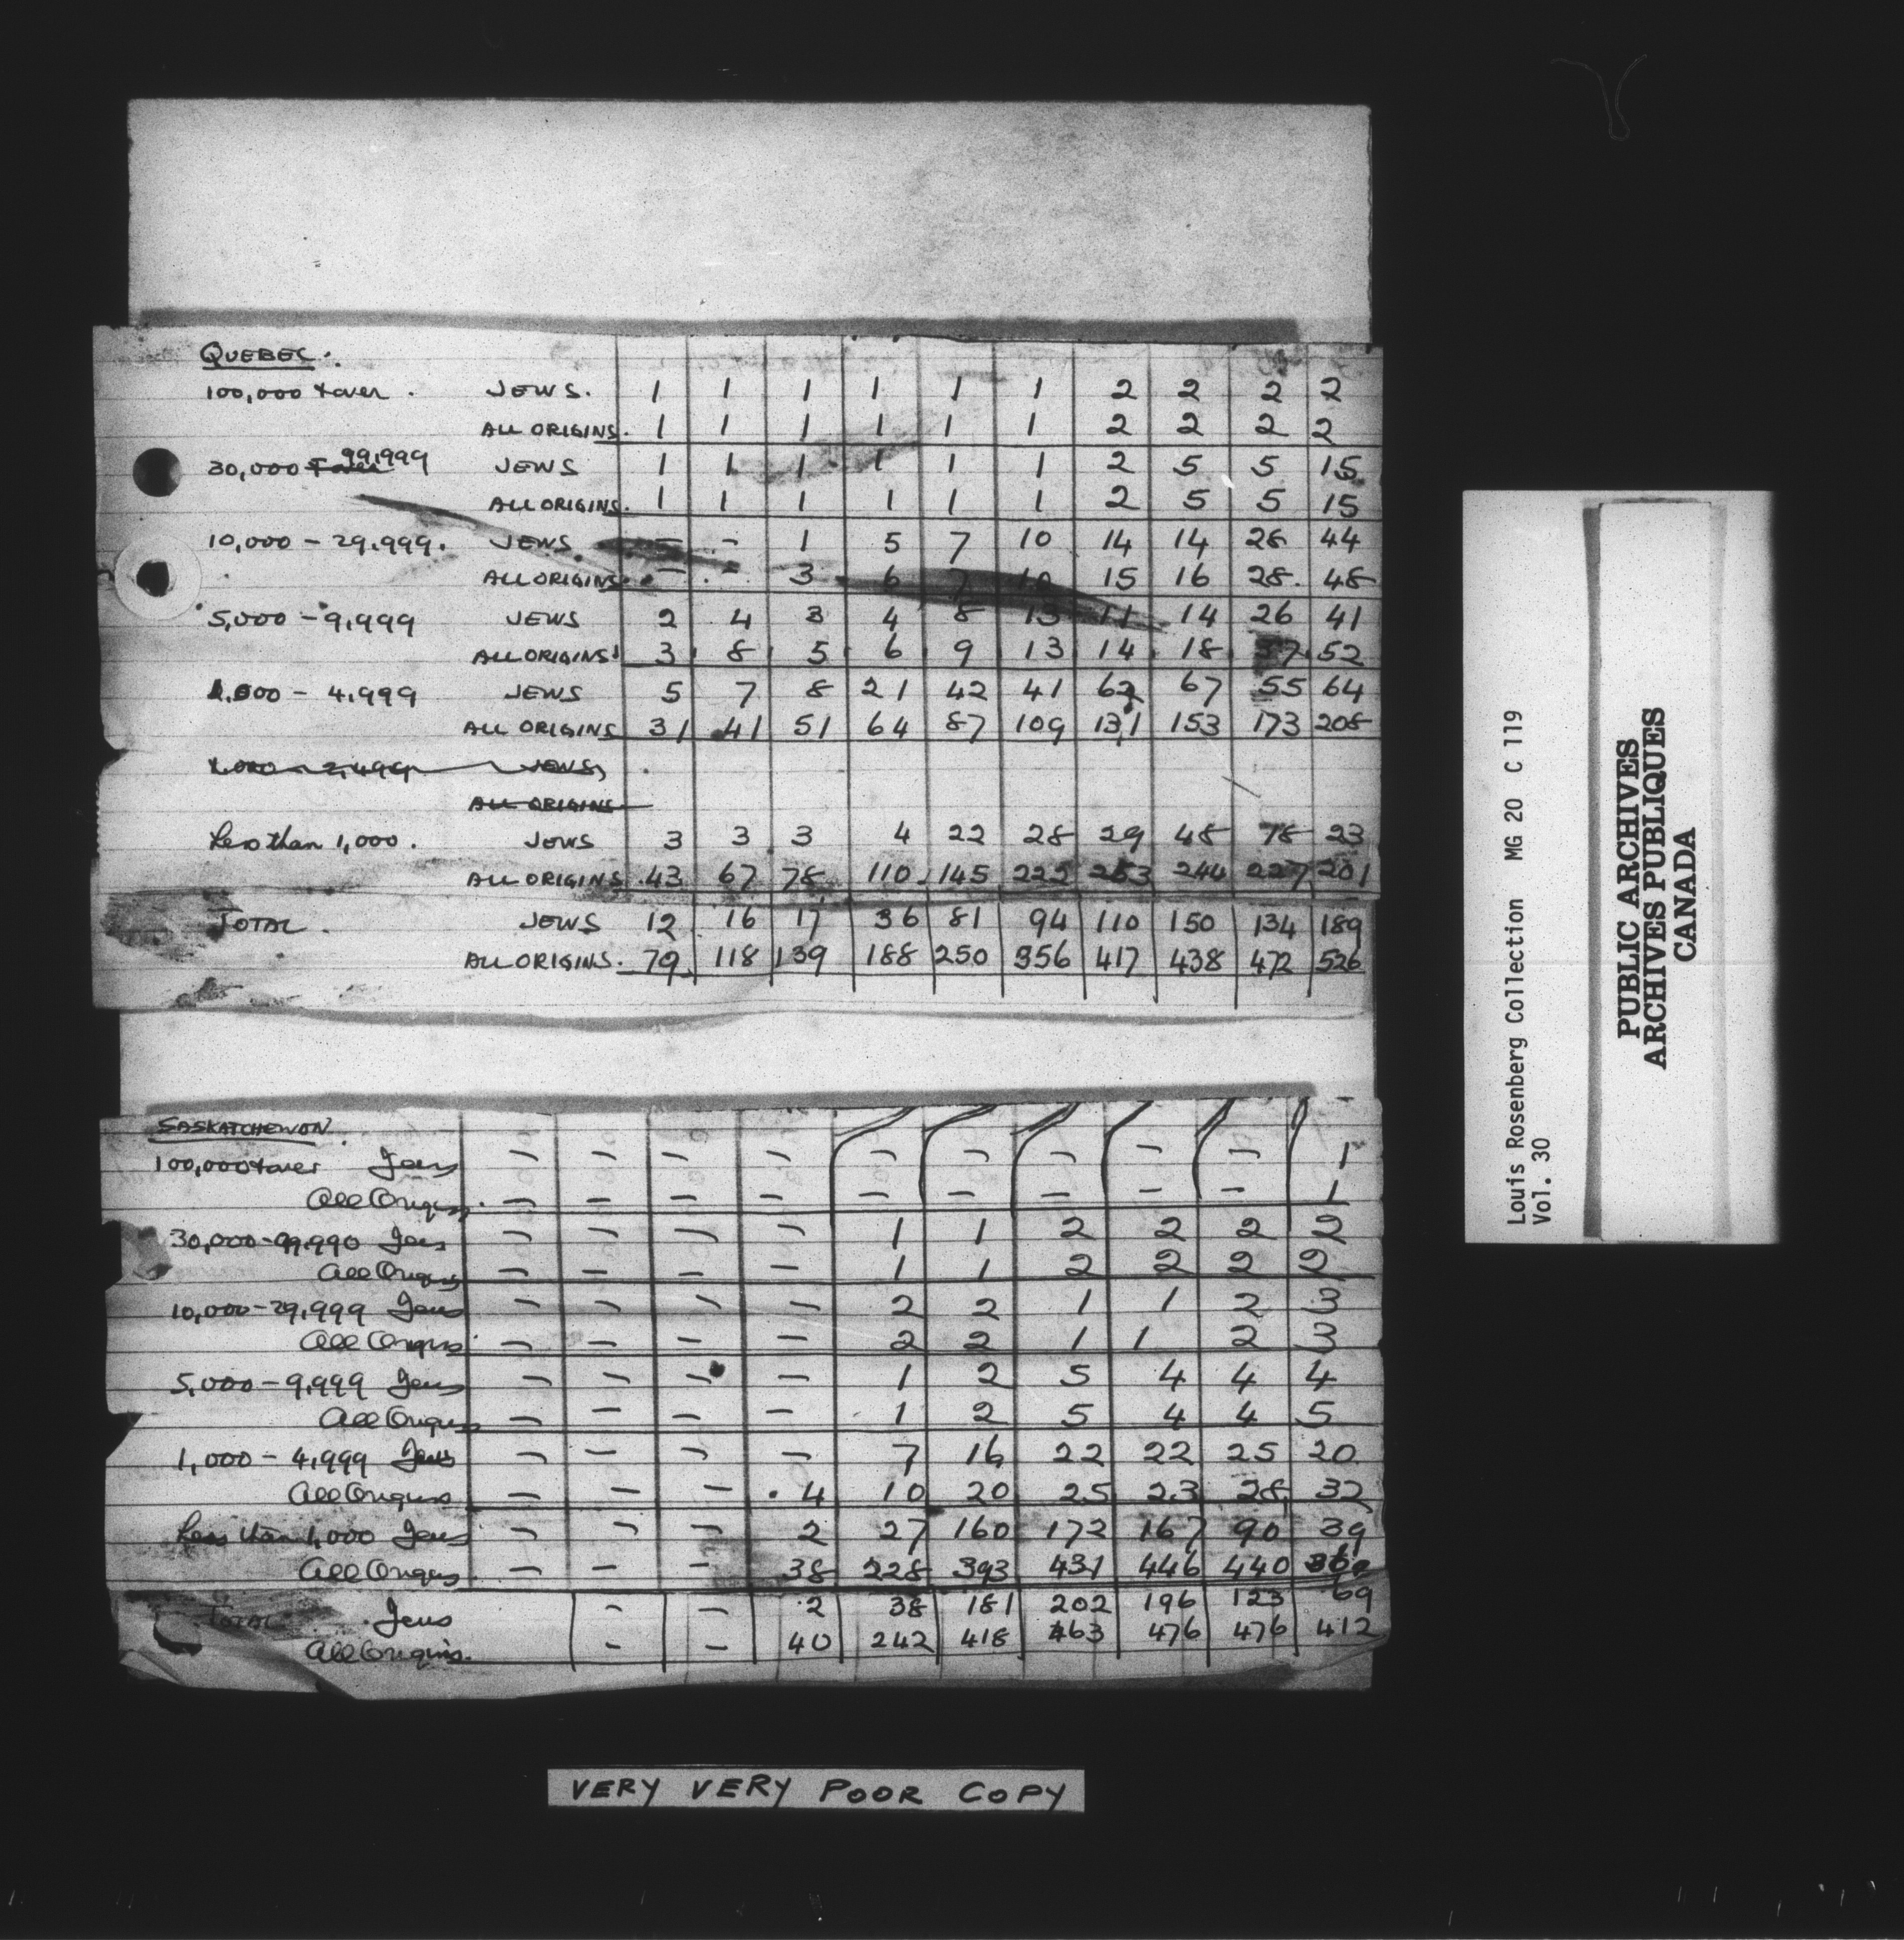 QUEBEC.
100,000 + over. JEWS. 1 1 1 1 1 1 2 2 2 2
ALL ORIGINS. 1 1 1 1 1 1 2 2 2 2
30,000 99,999 JEWS 1 1 1 1 1 1 2 5 5 15
ALL ORIGINS. 1 1 1 1 1 1 2 5 5 15
10,000 - 29,999. JEWS - - 1 5 7 10 14 14 28 44
ALL ORIGINS. - - 3 6 7 10 15 16 28 48
5,000 - 9,999 JEWS 2 4 3 4 8 13 11 14 26 41
ALL ORIGINS 3 8 5 6 9 13 14 18 37 52
1,000 - 4,999 JEWS 5 7 8 21 42 41 62 67 55 64
ALL ORIGINS 31 41 51 64 87 109 131 153 173 208
1,000 - 2,499 JEWS
ALL ORIGINS
Less than 1,000. JEWS 3 3 3 4 22 28 29 48 18 23
ALL ORIGINS 43 67 78 110 145 222 253 244 227 201
TOTAL. JEWS 12 16 17 36 81 94 110 150 134 189
ALL ORIGINS. 79 118 139 188 250 356 417 438 472 526
SASKATCHEWON.
100,000 + over Jews - - - - - - - - - 1
All Origins. - - - - - - - - - 1
30,000-99,990 Jews - - - - 1 1 2 2 2 2
All Origins - - - - 1 1 2 2 2 2
10,000-29,999 Jews - - - - 2 2 1 1 2 3
All Origins - - - - 2 2 1 1 2 3
5,000-9,999 Jews - - - - 1 2 5 4 4 4
All Origins - - - - 1 2 5 4 4 5
1,000 - 4,999 Jews - - - - 7 16 22 22 25 20
All Origins - - - 4 10 20 25 23 28 32
Less than 1,000 Jews - - - 2 27 160 172 167 90 39
All Origins - - - 38 228 393 431 446 440
TOTAL Jews - - 2 38 181 202 196 123 69
All Origins. - - 40 242 418 463 476 476 412
VERY VERY POOR COPY
Louis Rosenberg Collection MG 20 C 119
Vol. 30
PUBLIC ARCHIVES
ARCHIVES PUBLIQUES
CANADA